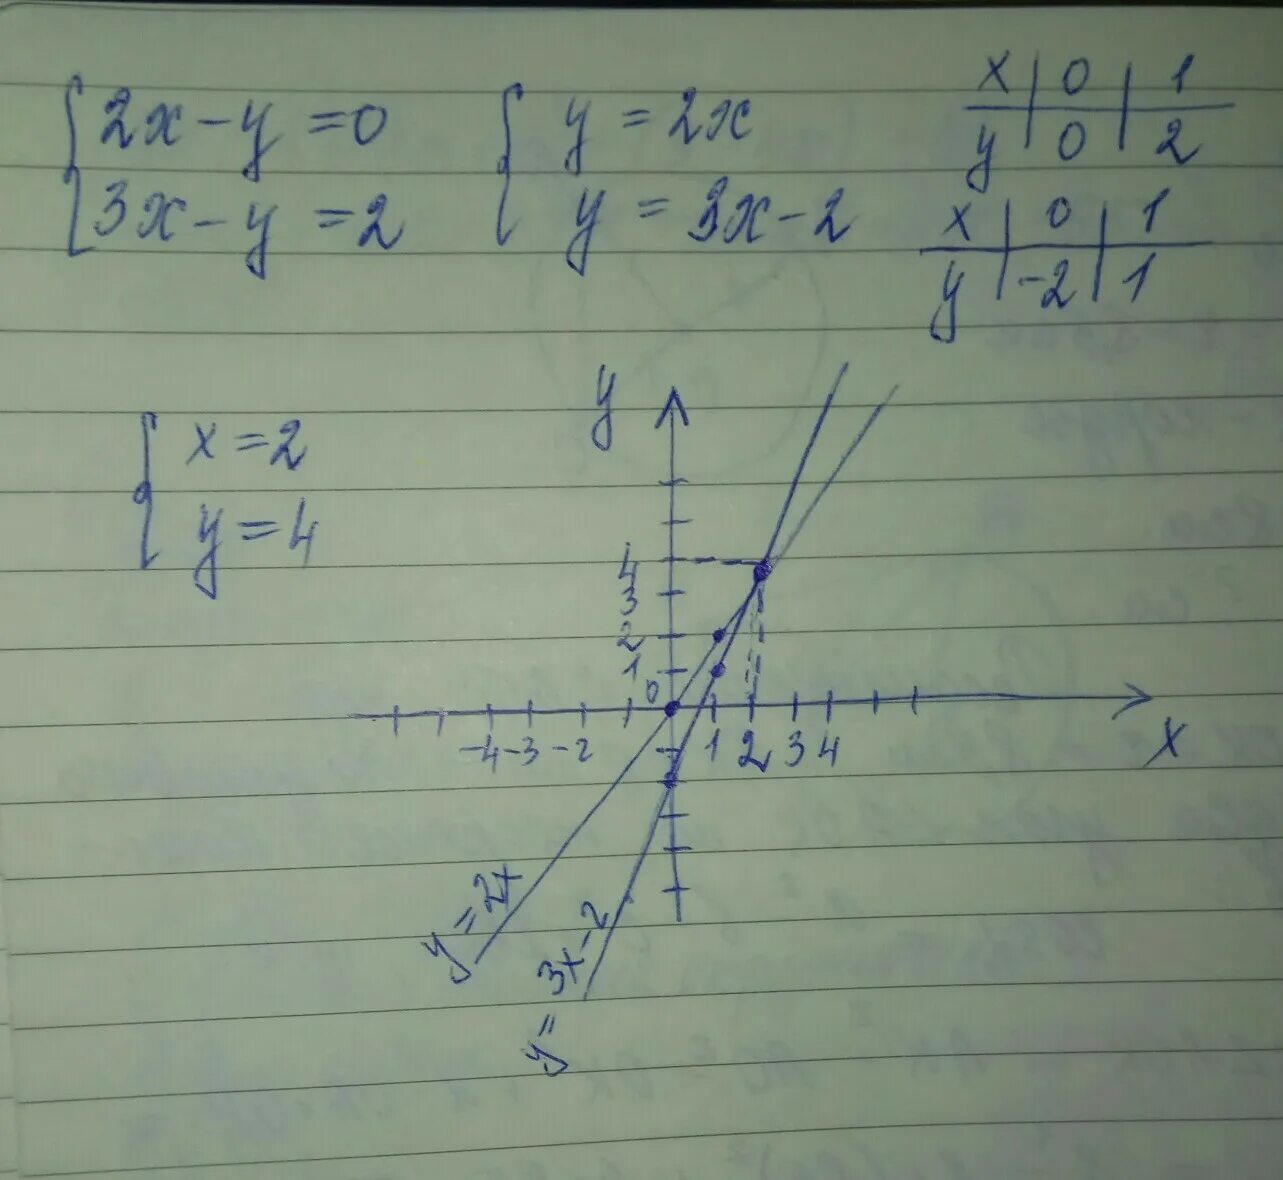 2x - y = 0
3x - y = 2
y = 2x
y = 3x - 2
x | 0 | 1
y | 0 | 2
x | 0 | 1
y | -2 | 1
x = 2
y = 4
y
4
3
2
1
0
-4 -3 -2 1 2 3 4
x
y = 2x
y = 3x - 2